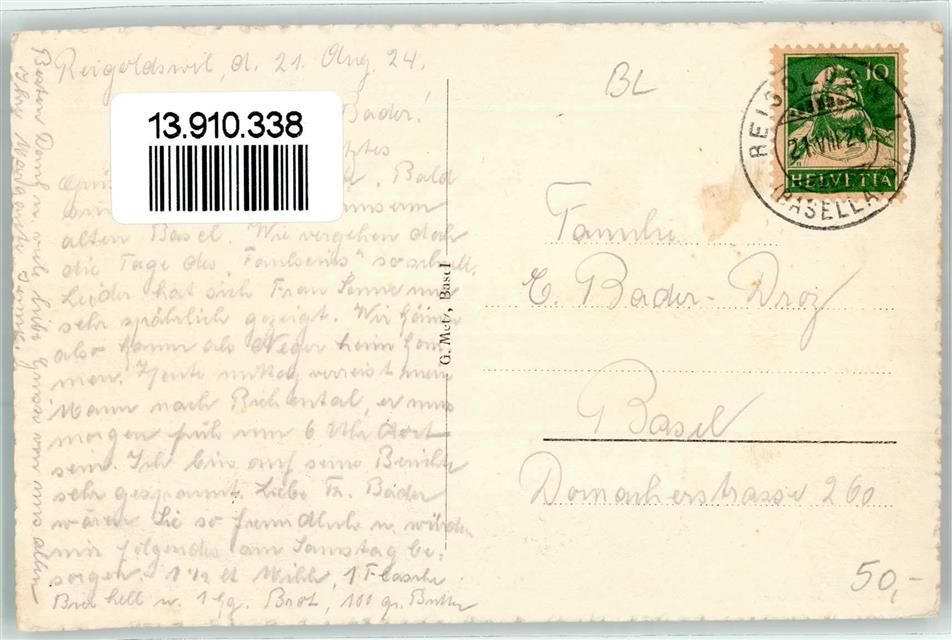 Reigoldswil, d. 21. Aug. 24.
Bader!
13.910.338
letztes
Bald
unserm
alten Basel. Wie vergehen doch
die Tage des „Faulseins" so schnell.
Leider hat sich Frau Sonne nur
sehr spährlich gezeigt. Wir können
also kaum als Neger heim kom-
men. Heute mittag verreist mein
Mann nach Richental, er muss
morgen früh um 6 Uhr dort
sein. Ich bin auf seine Berichte
sehr gespannt. Liebe Fr. Bader
wären Sie so freundlich u. würden
mir folgendes am Samstag be-
sorgen. 1 1/2 lt Milch, 1 Flasche
Bier hell u. 1 kg. Brot, 100 gr. Butter
Besten Dank u. viele liebe Grüsse von uns allen
Ihre
G. Metz, Basel
BL
10
HELVETIA
REIGOLDSWIL
21.VIII.24
(BASELLAND)
Familie
E. Bader-Droz
Basel
Dornacherstrasse 260
50,-